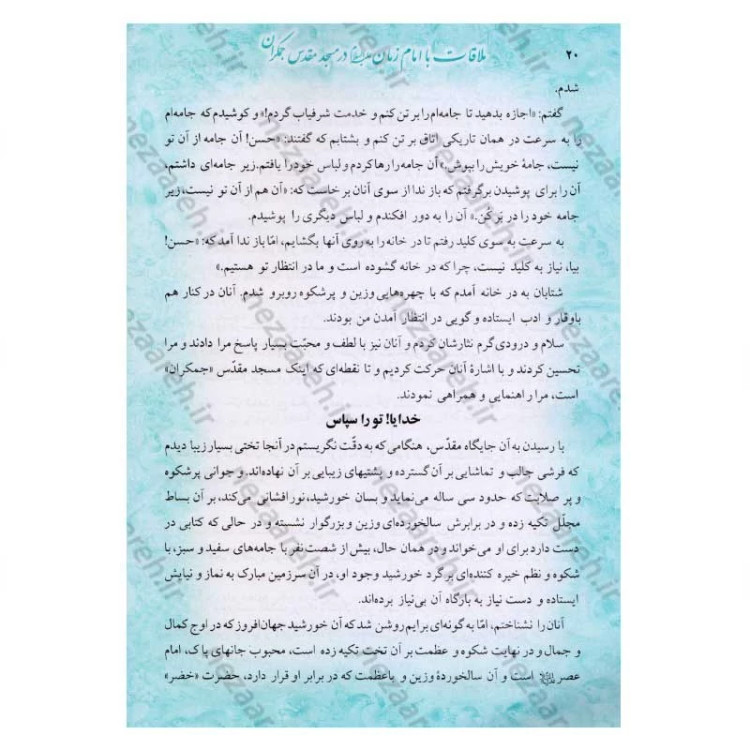 ۲۰
ملاقات با امام زمان در مسجد مقدس جمکران
شدم.
گفتم: «اجازه بدهید تا جامه‌ام را بر تن کنم و خدمت شرفیاب گردم!» و کوشیدم که جامه‌ام
را به سرعت در همان تاریکی اتاق بر تن کنم و بشتابم که گفتند: «حسن! آن جامه از آن تو
نیست، جامهٔ خویش را بپوش.» آن جامه را رها کردم و لباس خود را یافتم. زیر جامه‌ای داشتم،
آن را برای پوشیدن برگرفتم که باز ندا از سوی آنان برخاست که: «آن هم از آن تو نیست، زیر
جامه خود را در بَر کن.» آن را به دور افکندم و لباس دیگری را پوشیدم.
به سرعت به سوی کلید رفتم تا در خانه را به روی آنها بگشایم، امّا باز ندا آمد که: «حسن!
بیا، نیاز به کلید نیست، چرا که در خانه گشوده است و ما در انتظار تو هستیم.»
شتابان به در خانه آمدم که با چهره‌هایی وزین و پرشکوه روبرو شدم. آنان در کنار هم
باوقار و ادب ایستاده و گویی در انتظار آمدن من بودند.
سلام و درودی گرم نثارشان کردم و آنان نیز با لطف و محبّت بسیار پاسخ مرا دادند و مرا
تحسین کردند و با اشارهٔ آنان حرکت کردیم و تا نقطه‌ای که اینک مسجد مقدّس «جمکران»
است، مرا راهنمایی و همراهی نمودند.
خدایا! تو را سپاس
با رسیدن به آن جایگاه مقدّس، هنگامی که به دقّت نگریستم در آنجا تختی بسیار زیبا دیدم
که فرشی جالب و تماشایی بر آن گسترده و پشتیهای زیبایی بر آن نهاده‌اند، و جوانی پرشکوه
و پر صلابت که حدود سی ساله می‌نماید و بسان خورشید، نور افشانی می‌کند، بر آن بساط
مجلّل تکیه زده و در برابرش سالخورده‌ای وزین و بزرگوار نشسته و در حالی که کتابی در
دست دارد برای او می‌خواند و در همان حال، بیش از شصت نفر با جامه‌های سفید و سبز، با
شکوه و نظم خیره کننده‌ای بر گرد خورشید وجود او، در آن سرزمین مبارک به نماز و نیایش
ایستاده و دست نیاز به بارگاه آن بی‌نیاز برده‌اند.
آنان را نشناختم، امّا به گونه‌ای برایم روشن شد که آن خورشید جهان‌افروز که در اوج کمال
و جمال و در نهایت شکوه و عظمت بر آن تخت تکیه زده است، محبوب جانهای پاک، امام
عصر است و آن سالخوردهٔ وزین و باعظمت که در برابر او قرار دارد، حضرت «خضر»
nezaareh.ir